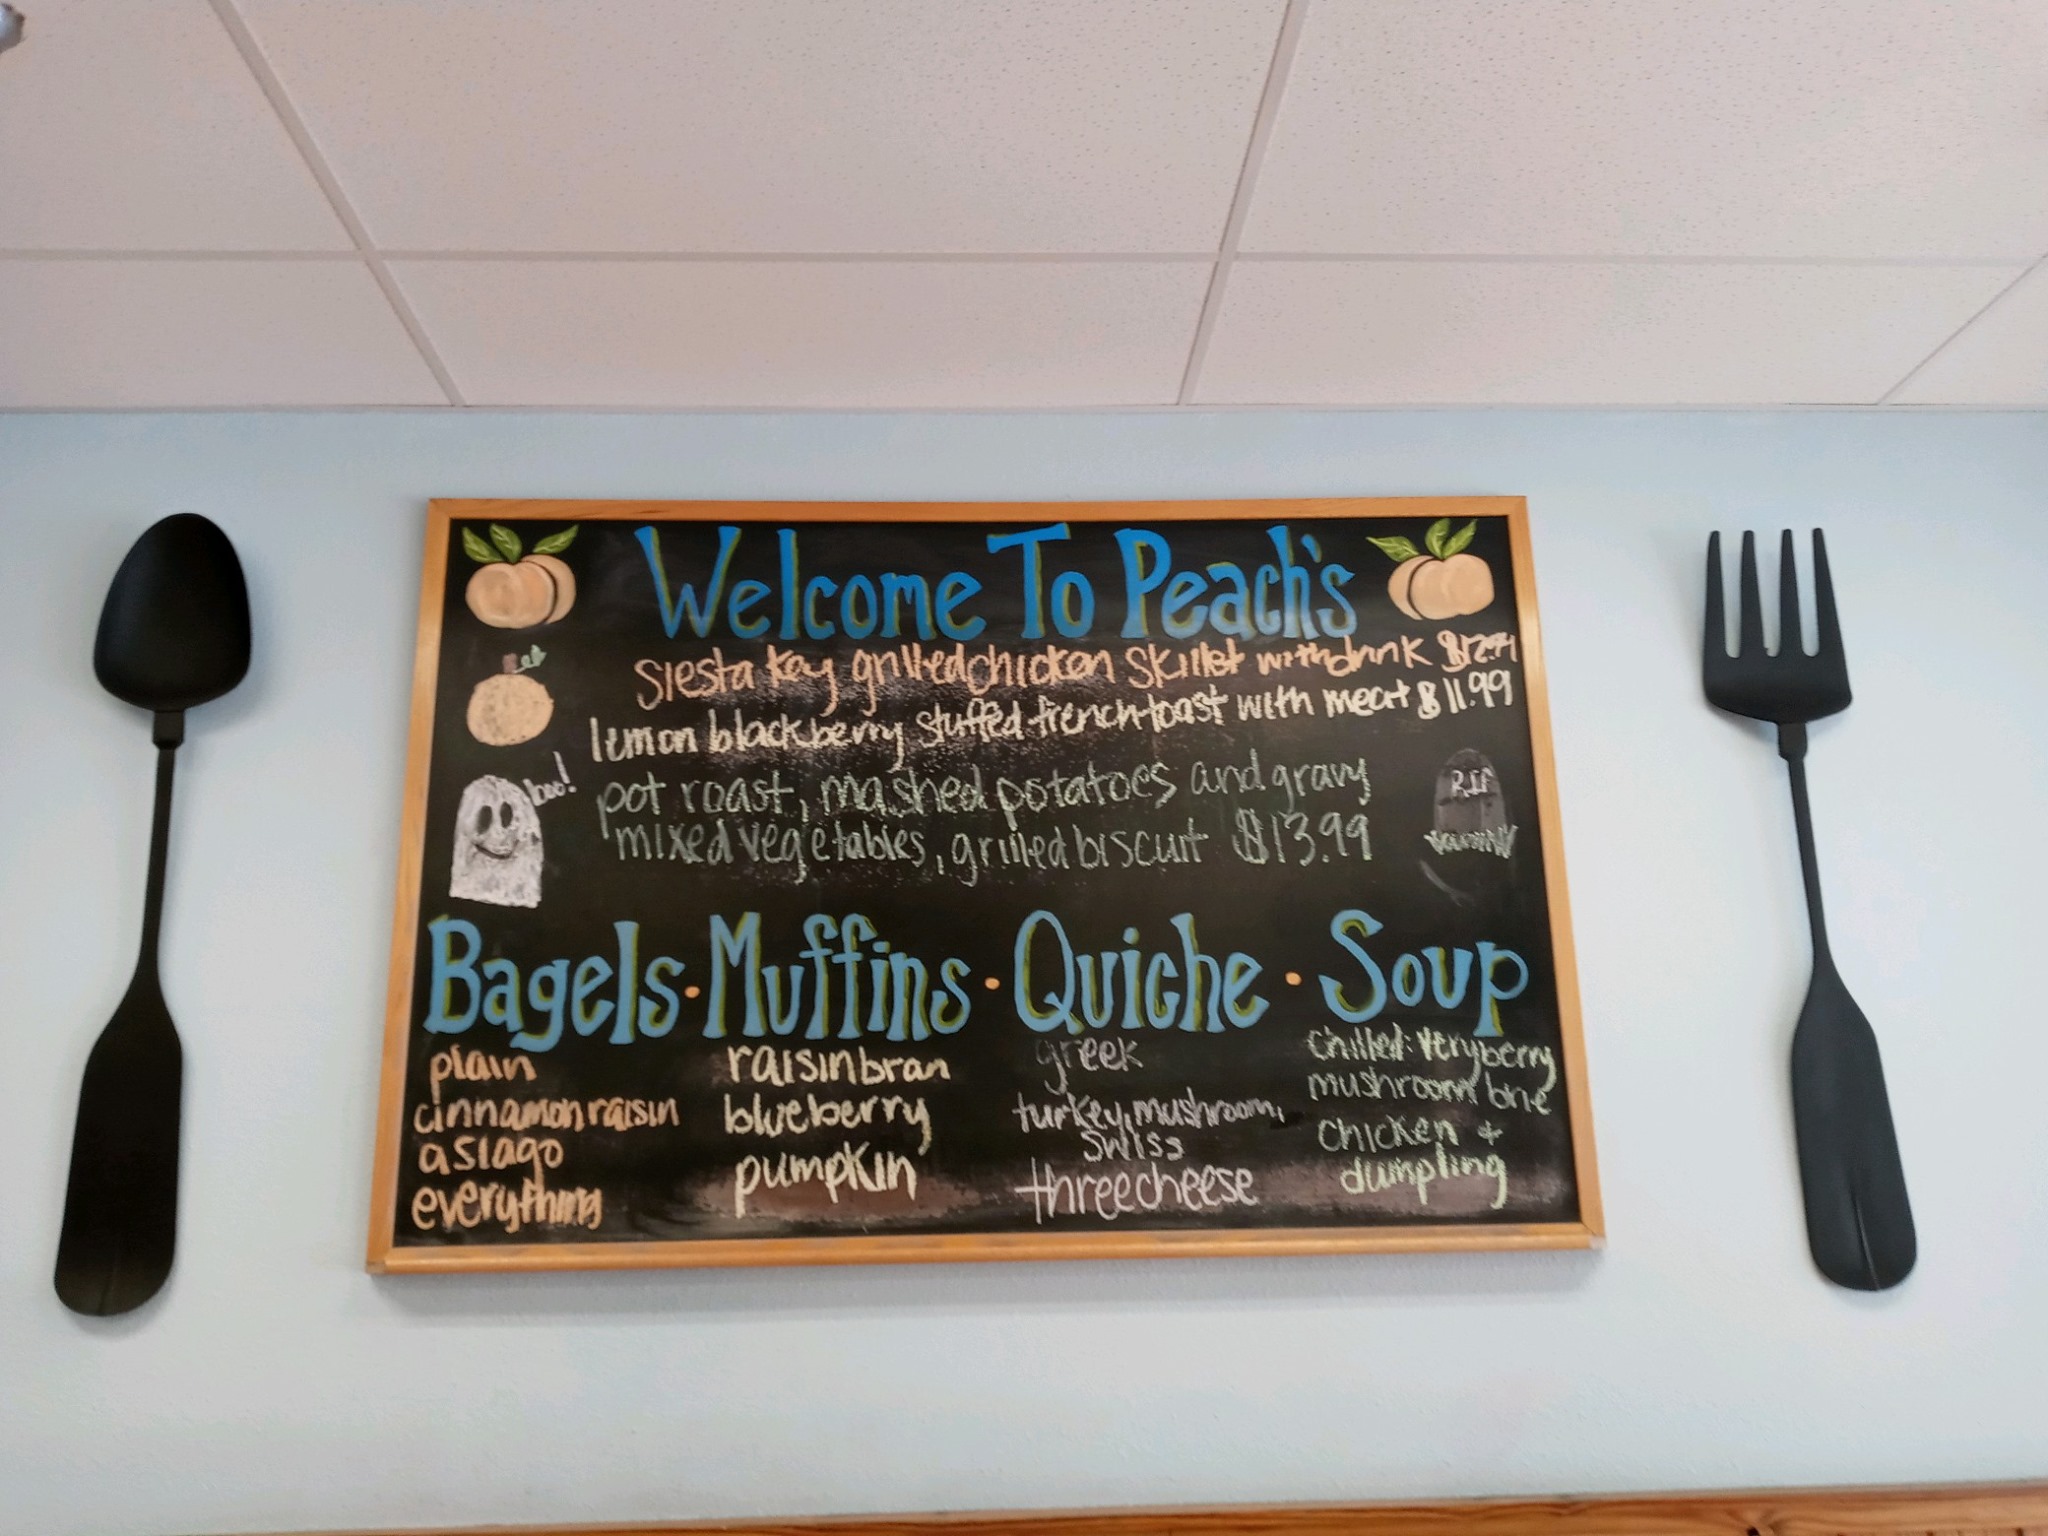 Welcome To Peach's
Siesta Key grilled chicken skillet with drink
lemon blackberry stuffed french toast with meat $11.99
boo!
pot roast, mashed potatoes and gravy
RIP
mixed vegetables, grilled biscuit $13.99
Bagels · Muffins · Quiche · Soup
plain
cinnamon raisin
asiago
everything
raisin bran
blueberry
pumpkin
greek
turkey, mushroom,
swiss
three cheese
chilled: very berry
mushroom brie
chicken +
dumpling